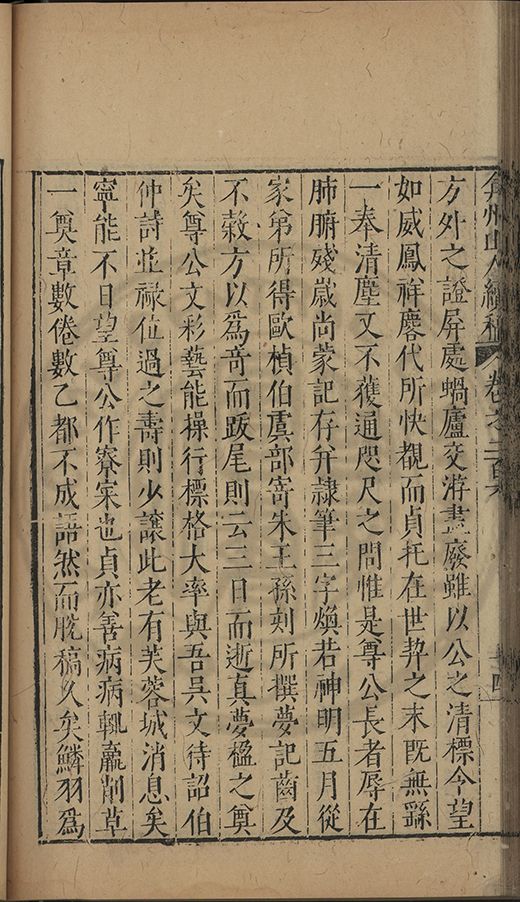 弇州山人續稿 卷之二百六 十四
方外之證屏處蝸廬交游晝廢雖以公之清標令望
如威鳳祥麐代所快覩而貞托在世契之末旣無繇
一奉清塵又不獲通咫尺之問惟是尊公長者辱在
肺腑殘歲尚蒙記存弁隷筆三字煥若神明五月從
家弟所得歐楨伯虞部寄朱王孫刻所撰夢記齒及
不榖方以爲奇而跋尾則云三日而逝真夢楹之奠
矣尊公文彩藝能操行標格大率與吾吳文待詔伯
仲詩並祿位過之壽則少讓此老有芙蓉城消息矣
寧能不日望尊公作寮寀也貞亦善病病輒羸削草
一奠章數倦數乙都不成語然而脫稿久矣鱗羽爲